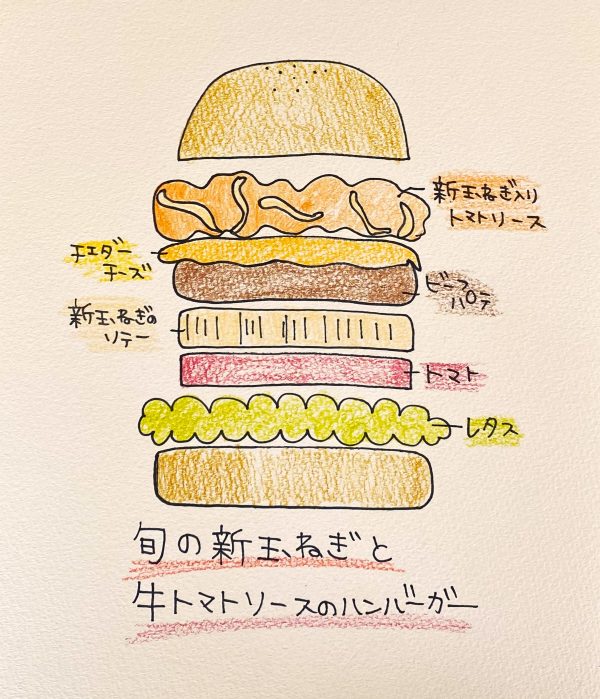 新玉ねぎ入り
トマトソース
チェダー
チーズ
ビーフ
パテ
新玉ねぎの
ソテー
トマト
レタス
旬の新玉ねぎと
牛トマトソースのハンバーガー